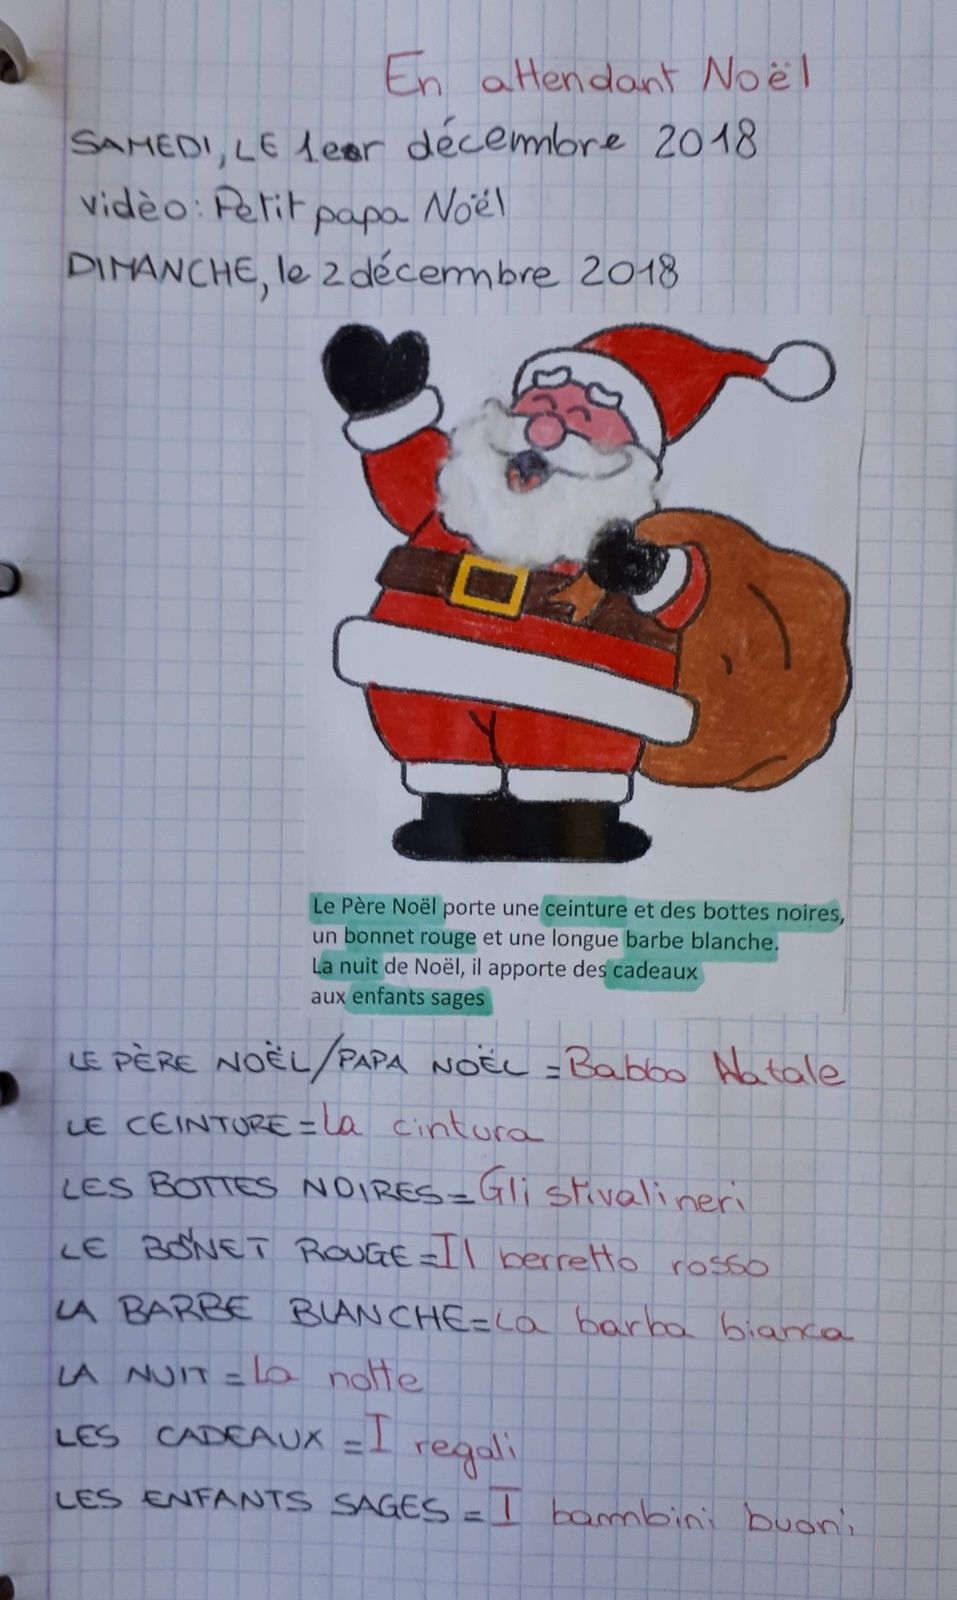 En attendant Noël
SAMEDI, LE 1er décembre 2018
vidèo: Petit papa Noël
DIMANCHE, le 2 décembre 2018
Le Père Noël porte une ceinture et des bottes noires,
un bonnet rouge et une longue barbe blanche.
La nuit de Noël, il apporte des cadeaux
aux enfants sages
LE PÈRE NOËL/PAPA NOËL = Babbo Natale
LE CEINTURE = la cintura
LES BOTTES NOIRES = Gli stivali neri
LE BONNET ROUGE = Il berretto rosso
LA BARBE BLANCHE = La barba bianca
LA NUIT = La notte
LES CADEAUX = I regali
LES ENFANTS SAGES = I bambini buoni